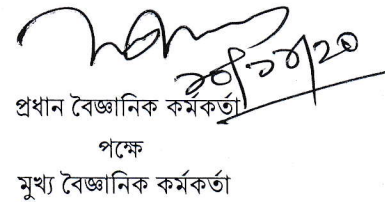 ২০/১২/২০
প্রধান বৈজ্ঞানিক কর্মকর্তা
পক্ষে
মুখ্য বৈজ্ঞানিক কর্মকর্তা